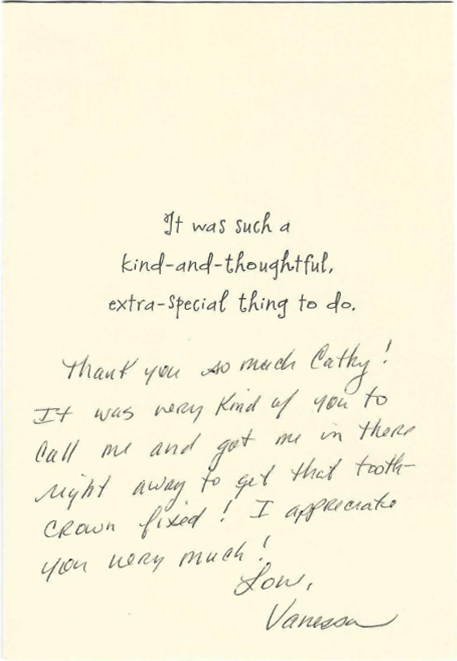 It was such a
kind-and-thoughtful,
extra-special thing to do.
Thank you so much Cathy!
It was very kind of you to
Call me and get me in there
right away to get that tooth-
crown fixed! I appreciate
you very much!
Love,
Vanessa